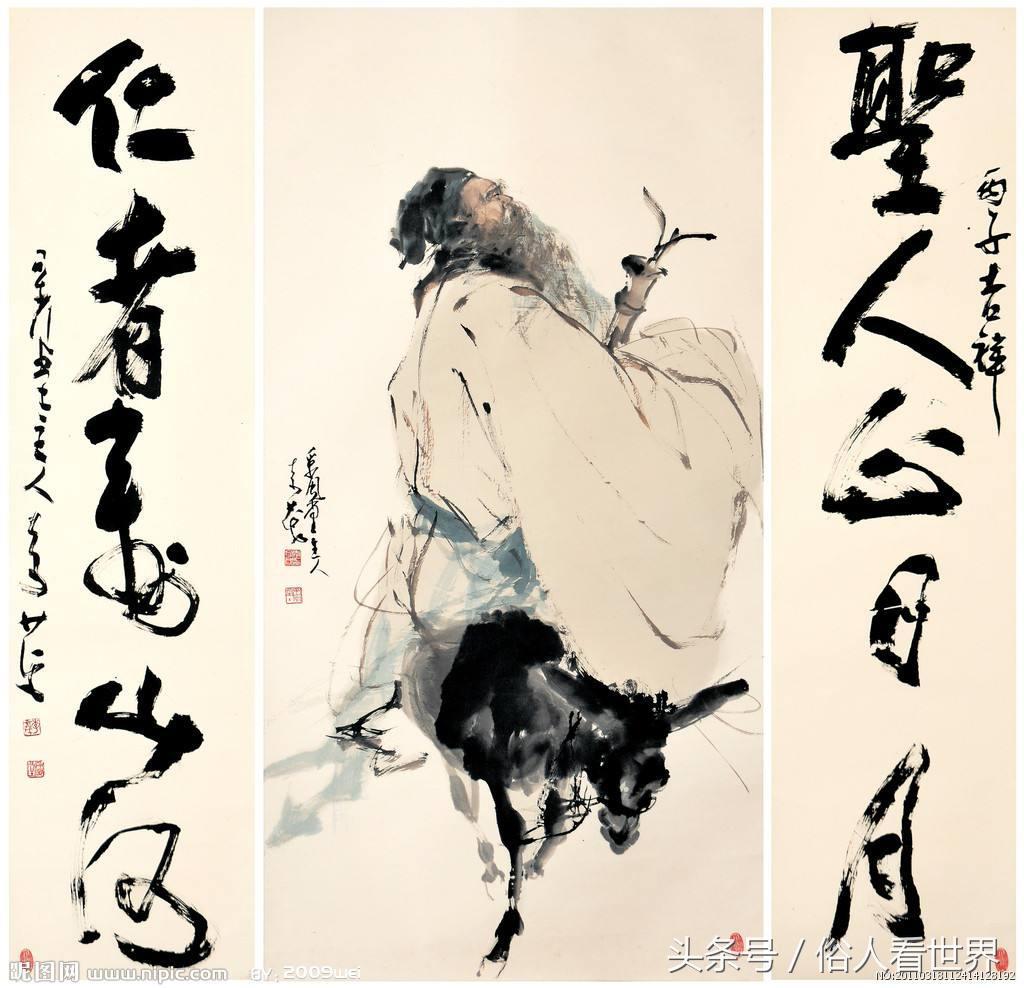 聖人心日月
丙子吉祥
采風堂主人
仁者壽山河
昵图网 www.nipic.com
by:2009wei
头条号 / 俗人看世界
NO:20110318112414128192